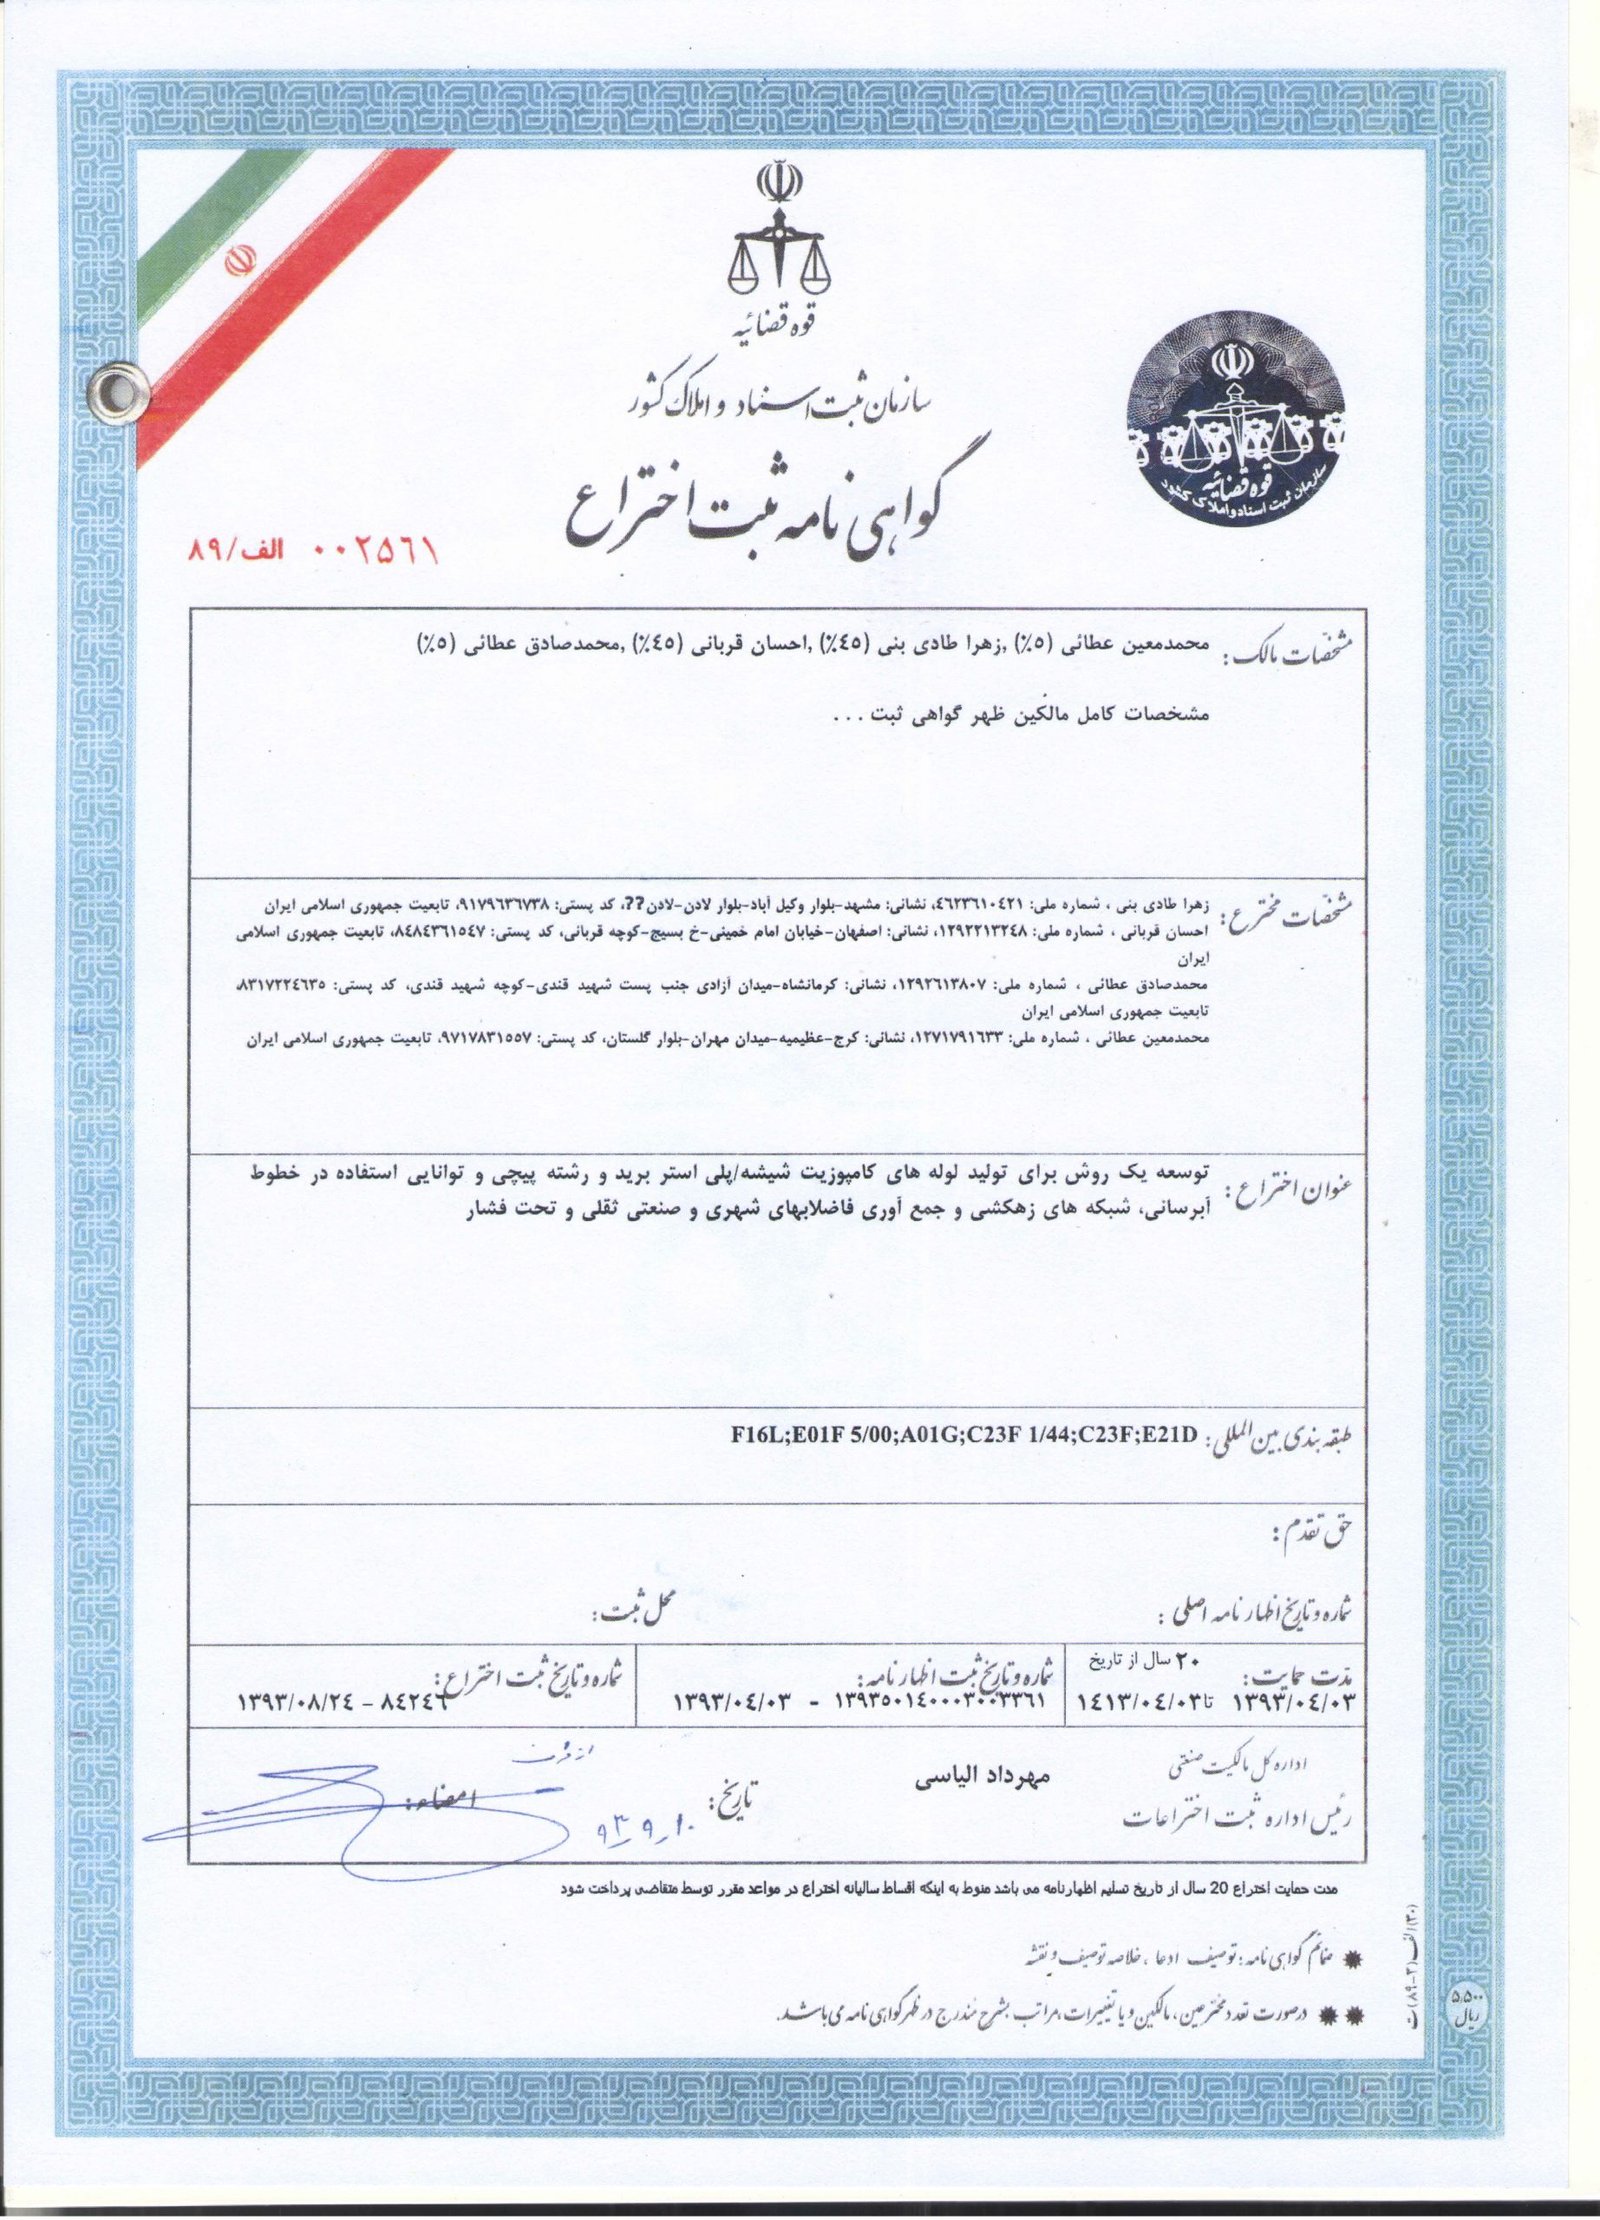 قوه قضائیه
سازمان ثبت اسناد و املاک کشور
قوه قضائیه
سازمان ثبت اسناد و املاک کشور
گواهی نامه ثبت اختراع
۰۰۲۵۶۱ الف/۸۹
مشخصات مالک: محمدمعین عطائی (٥٪) ,زهرا طادی بنی (٤٥٪) ,احسان قربانی (٤٥٪) ,محمدصادق عطائی (٥٪)
مشخصات کامل مالکین ظهر گواهی ثبت ...
مشخصات مخترع: زهرا طادی بنی ، شماره ملی: ٤٦٢٣٦١٠٤٢١، نشانی: مشهد-بلوار وکیل آباد-بلوار لادن-لادن??، کد پستی: ٩١٧٩٦٣٦٧٣٨، تابعیت جمهوری اسلامی ایران
احسان قربانی ، شماره ملی: ١٢٩٢٢١٣٢٤٨، نشانی: اصفهان-خیابان امام خمینی-خ بسیج-کوچه قربانی، کد پستی: ٨٤٨٤٣٦١٥٤٧، تابعیت جمهوری اسلامی
ایران
محمدصادق عطائی ، شماره ملی: ١٢٩٢٦١٣٨٠٧، نشانی: کرمانشاه-میدان آزادی جنب پست شهید قندی-کوچه شهید قندی، کد پستی: ٨٣١٧٢٢٤٦٣٥،
تابعیت جمهوری اسلامی ایران
محمدمعین عطائی ، شماره ملی: ١٢٧١٧٩١٦٣٣، نشانی: کرج-عظیمیه-میدان مهران-بلوار گلستان، کد پستی: ٩٧١٧٨٣١٥٥٧، تابعیت جمهوری اسلامی ایران
عنوان اختراع: توسعه یک روش برای تولید لوله های کامپوزیت شیشه/پلی استر برید و رشته پیچی و توانایی استفاده در خطوط
آبرسانی، شبکه های زهکشی و جمع آوری فاضلابهای شهری و صنعتی ثقلی و تحت فشار
طبقه بندی بین المللی: F16L;E01F 5/00;A01G;C23F 1/44;C23F;E21D
حق تقدم:
شماره و تاریخ اظهار نامه اصلی: محل ثبت:
مدت حمایت: ٢٠ سال از تاریخ
١٣٩٣/٠٤/٠٣ تا ١٤١٣/٠٤/٠٣
شماره و تاریخ ثبت اظهار نامه:
١٣٩٣٥٠١٤٠٠٠٣٠٠٣٣٦١ - ١٣٩٣/٠٤/٠٣
شماره و تاریخ ثبت اختراع:
٨٤٢٤٦ - ١٣٩٣/٠٨/٢٤
اداره کل مالکیت صنعتی
رئیس اداره ثبت اختراعات
مهرداد الیاسی
تاریخ: ۹۳٫۹٫۱۰
از طرف
امضاء:
مدت حمایت اختراع 20 سال از تاریخ تسلیم اظهارنامه می باشد منوط به اینکه اقساط سالیانه اختراع در مواعد مقرر توسط متقاضی پرداخت شود
ضمائم گواهی نامه: توصیف ادعا، خلاصه توصیف و نقشه
در صورت تعدد مخترعین، مالکین و یا تغییرات، مراتب بشرح مندرج در ظهر گواهی نامه می باشد.
۵,۵۰۰
ریال